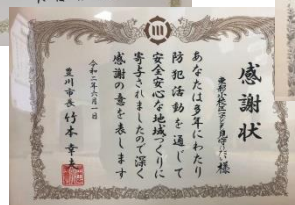 感謝状
様
あなたは多年にわたり
防犯活動を通じて
安全安心な地域づくりに
寄与されましたので深く
感謝の意を表します
令和二年六月一日
豊川市長 竹本幸夫